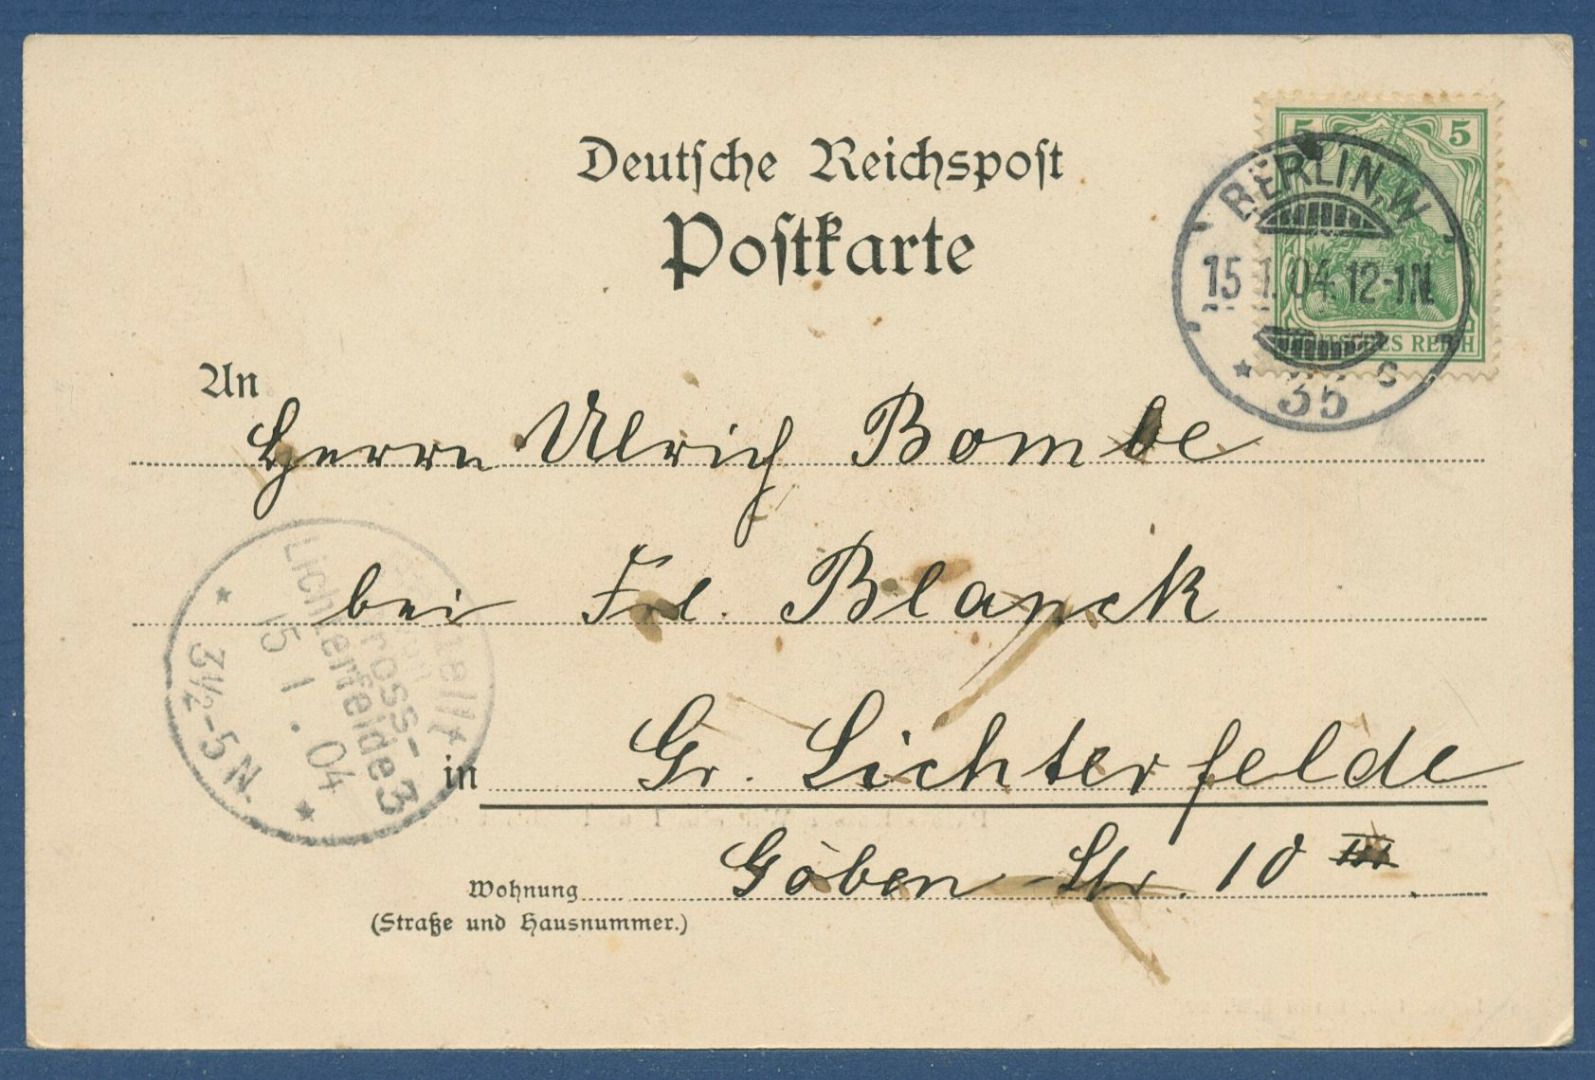 Deutsche Reichspost
Postkarte
5 5
DEUTSCHES REICH
BERLIN, W
15.1.04.12-1N.
* 35 c
An
Herrn Ulrich Bombe
bei Frl. Blanck
in Gr. Lichterfelde
Göben-Str. 10 III.
Wohnung
(Straße und Hausnummer.)
Bestellt
vom
Gross-
Lichterfelde 3
15 1.04
* 3½-5N. *